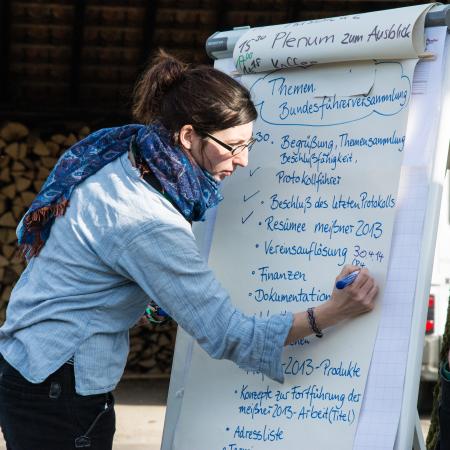 15-30 Plenum zum Ausblick
Themen
Bundesführerversammlung
30
• Begrüßung, Themensammlung
Beschlußfähigkeit.
Protokollführer
✓ • Beschluß des letzten Protokolls
✓ • Resümee meißner 2013
• Vereinsauflösung 30.4.14
• Finanzen
• Dokumentation
2013-Produkte
• Konzepte zur Fortführung der
meißner 2013-Arbeit (Titel)
• Adressliste